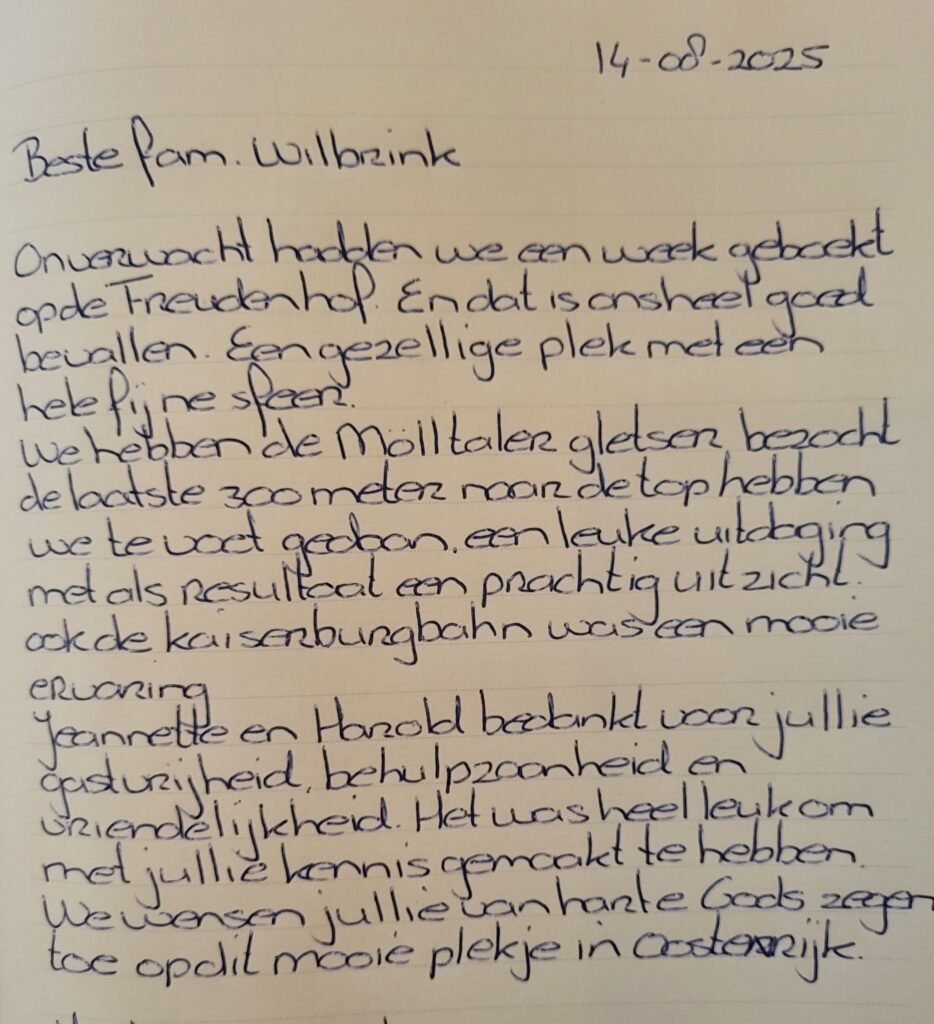 14-08-2025
Beste fam. Wilbrink
Onverwacht hadden we een week geboekt
op de Freudenhof. En dat is ons heel goed
bevallen. Een gezellige plek met een
hele fijne sfeer.
We hebben de Mölltaler gletser bezocht
de laatste 300 meter naar de top hebben
we te voet gedaan, een leuke uitdaging
met als resultaat een prachtig uitzicht.
ook de kaiserburgbahn was een mooie
ervaring
Jeannette en Harold bedankt voor jullie
gastvrijheid, behulpzaanheid en
vriendelijkheid. Het was heel leuk om
met jullie kennis gemaakt te hebben.
We wensen jullie van harte Gods zegen
toe op dit mooie plekje in Oostenrijk.